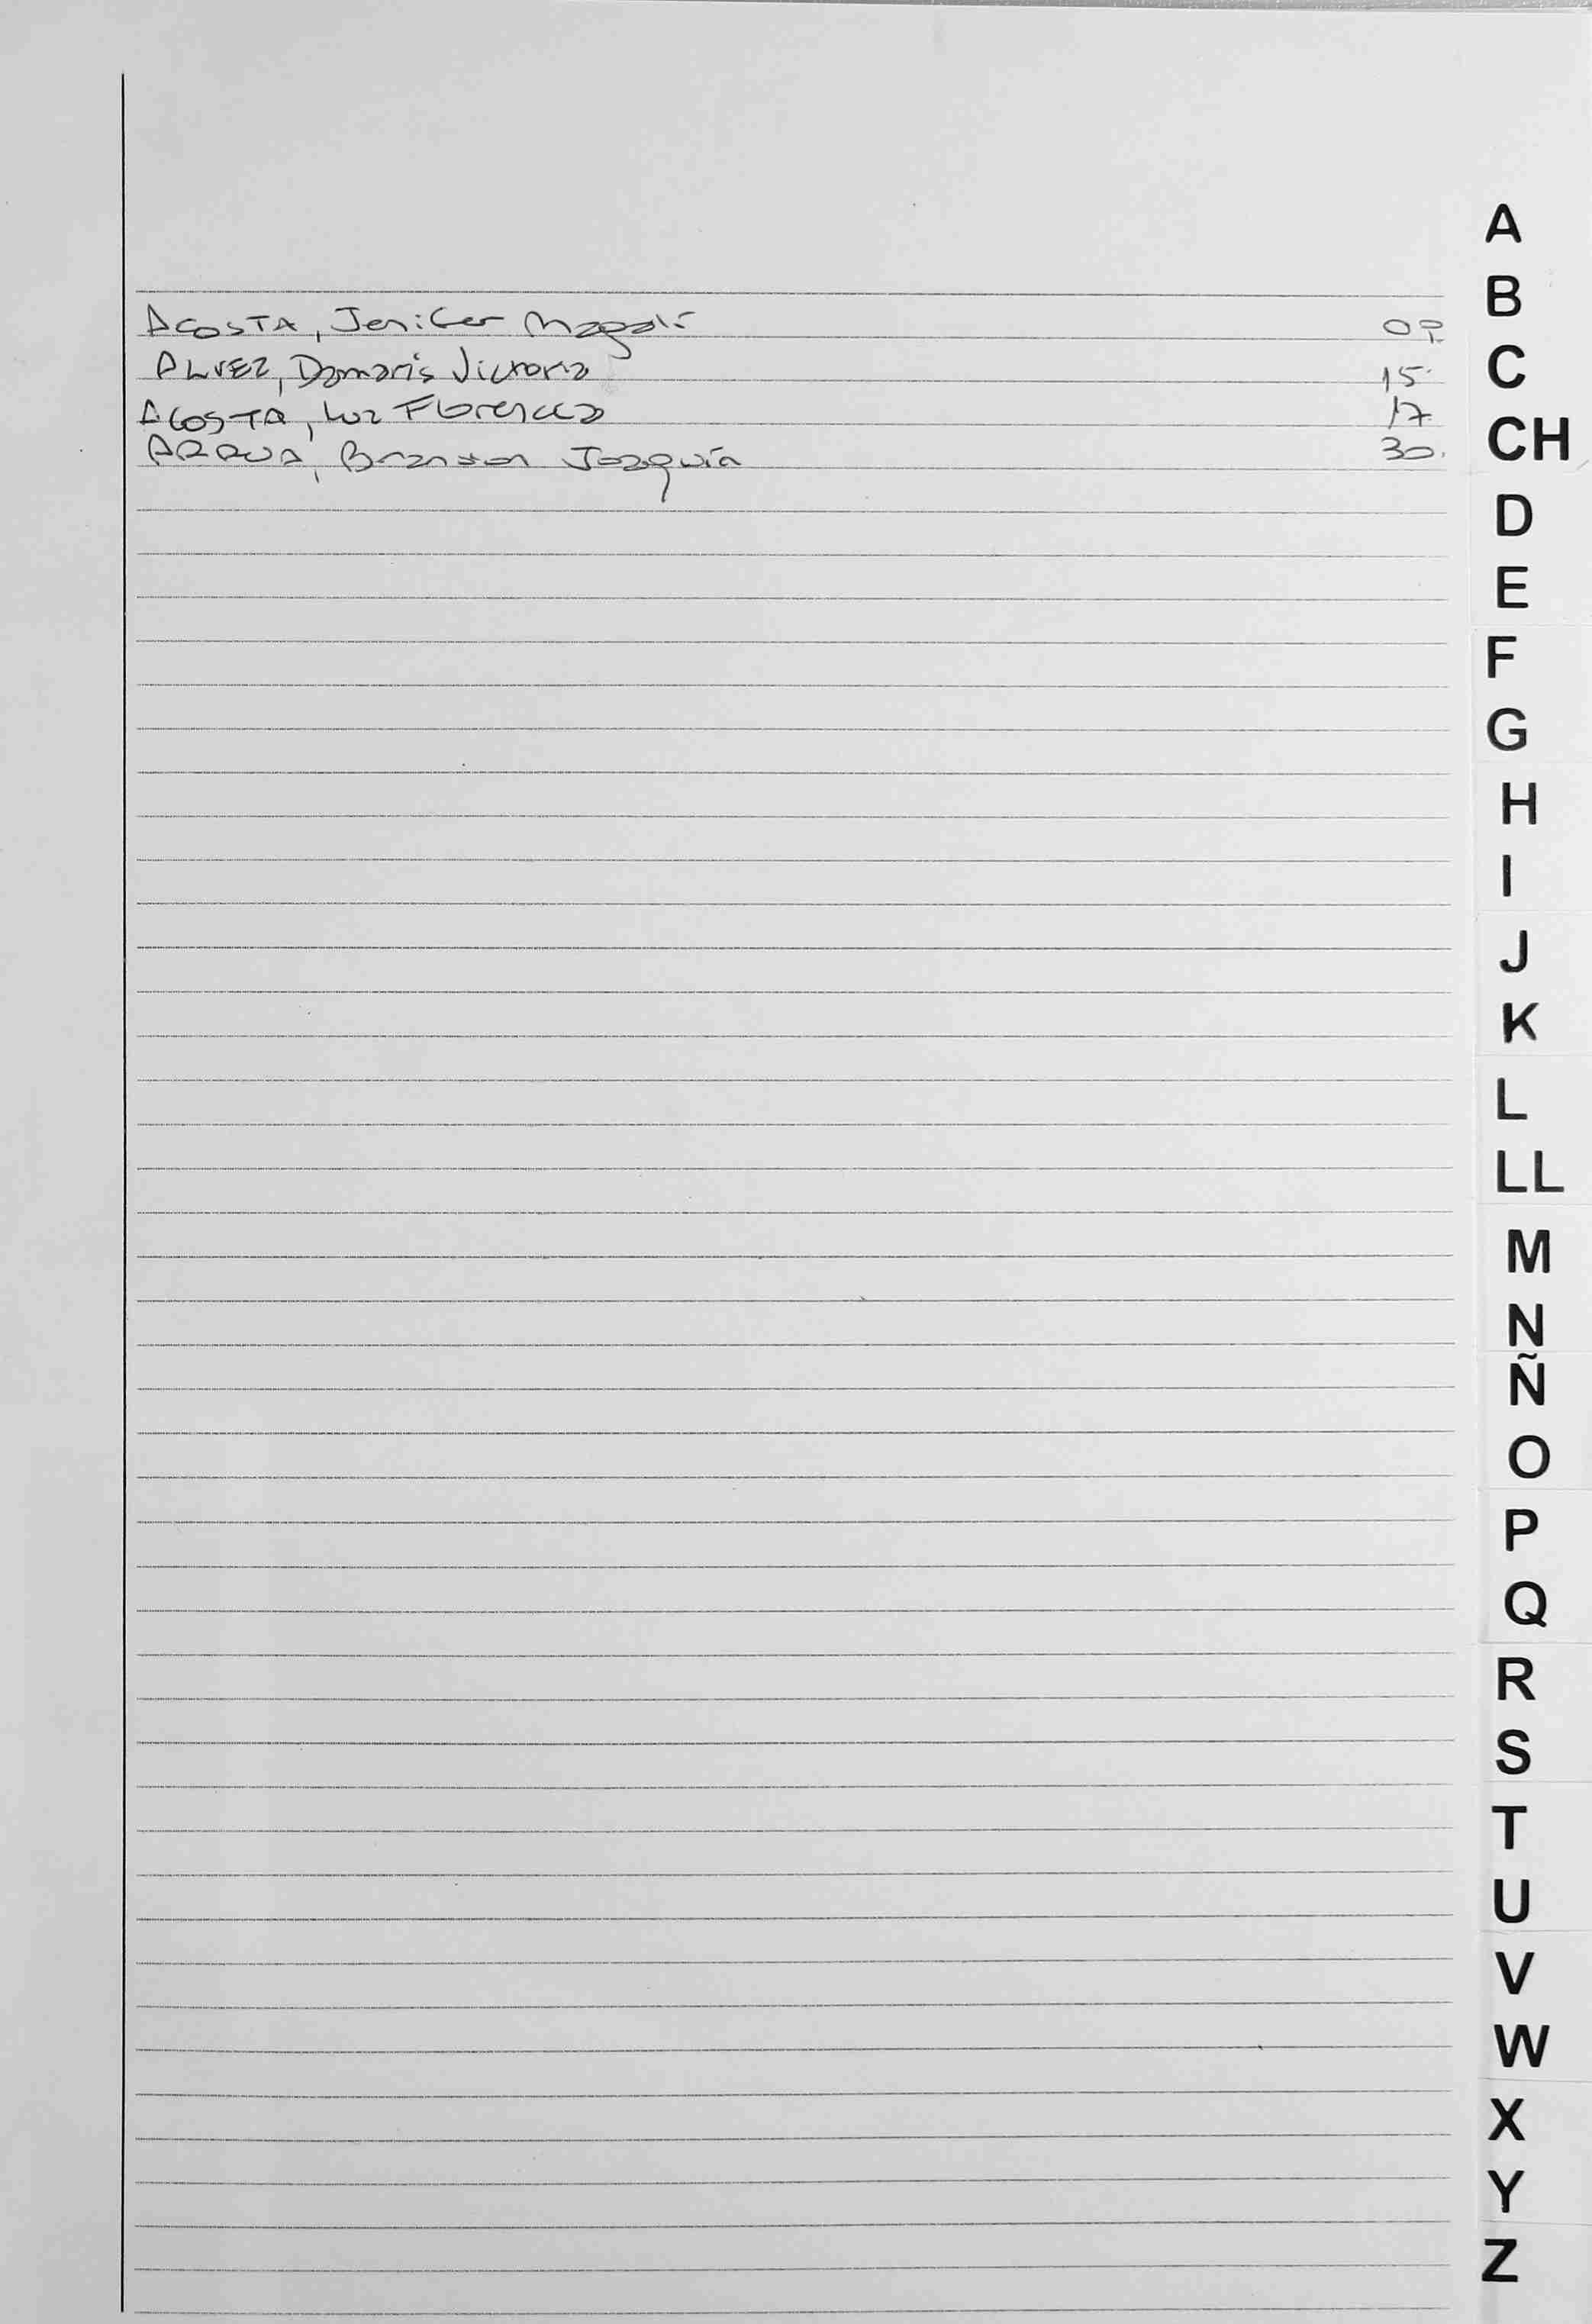 A
B
ACOSTA, Jenifer Magalí 09
ALVEZ, Damaris Victoria 15
C
ACOSTA, Luz Florencia 17
ARRUA, Brandon Joaquín 30.
CH
D
E
F
G
H
I
J
K
L
LL
M
N
Ñ
O
P
Q
R
S
T
U
V
W
X
Y
Z